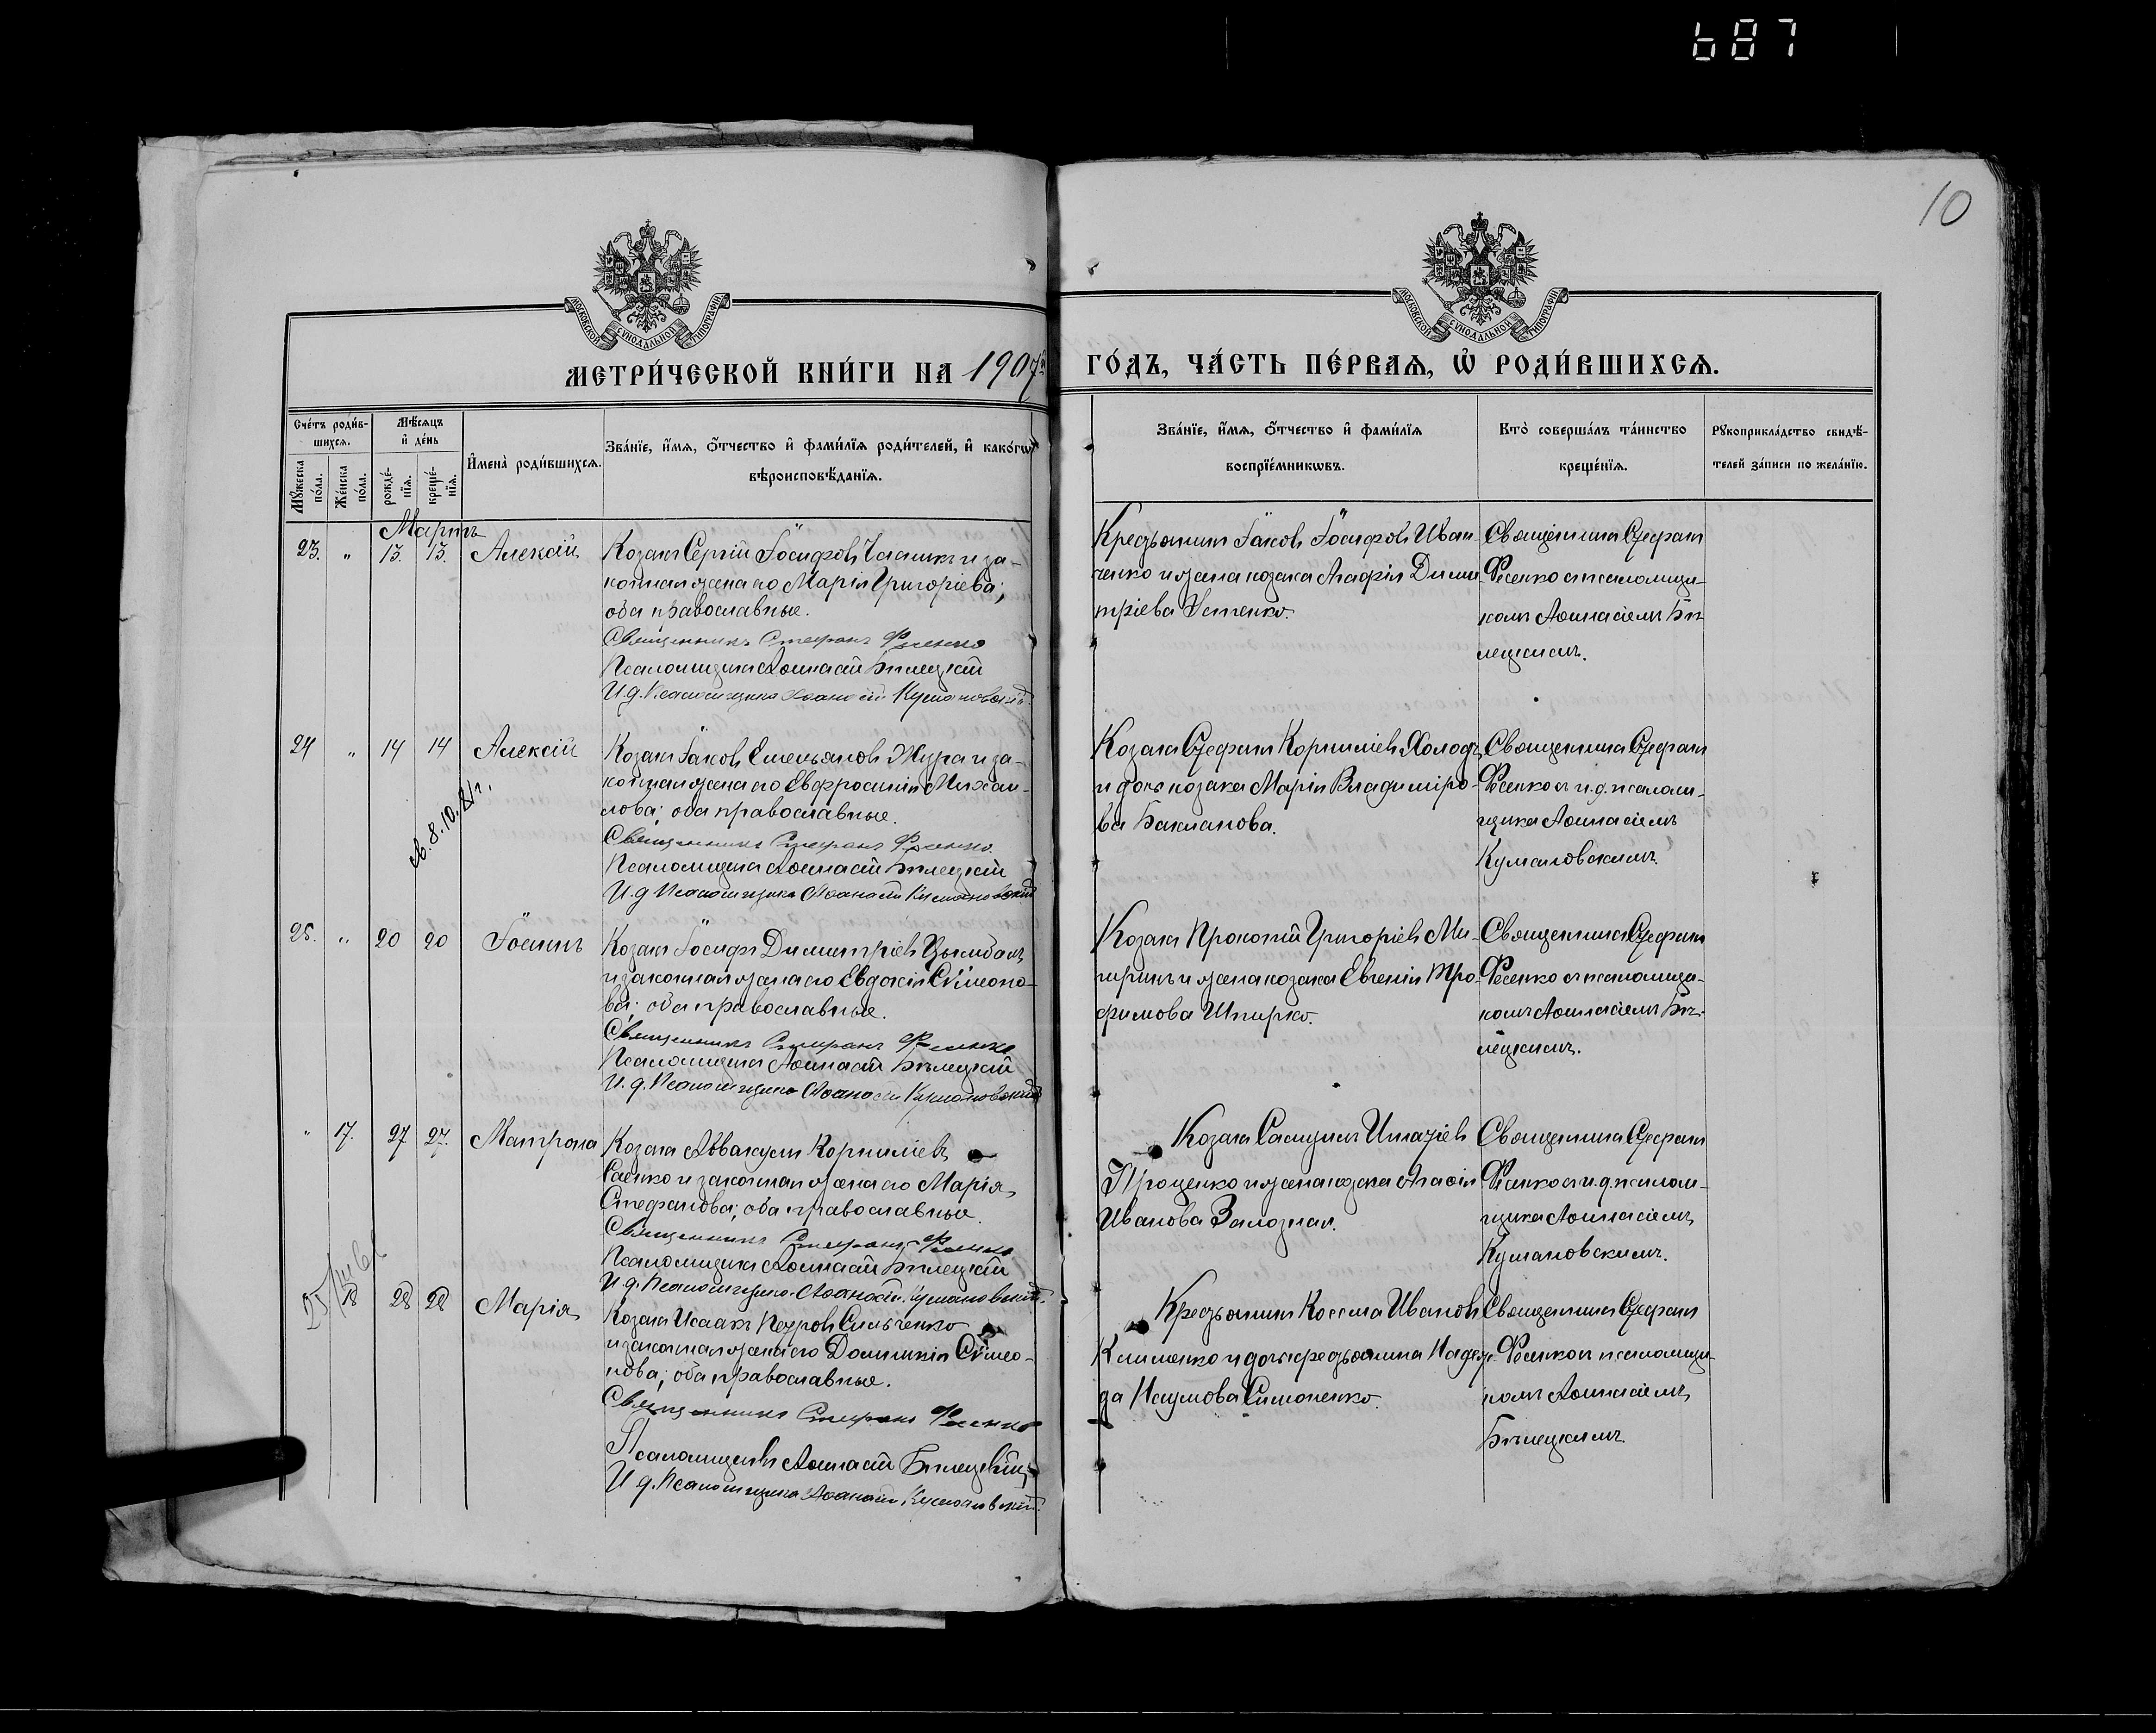 687
10
МОСКОВСКОЙ СѴНОДАЛЬНОЙ ТИПОГРАФІИ
МОСКОВСКОЙ СѴНОДАЛЬНОЙ ТИПОГРАФІИ
МЕТРИ́ЧЕСКОЙ КНИ́ГИ НА 1907й
ГО́ДЪ, ЧА́СТЬ ПЕ́РВАѦ, Ѡ РОДИ́ВШИХСѦ.
Сче́тъ роди́в-
шихсѧ.
Мꙋ́жеска по́ла.
Же́нска по́ла.
Мѣ́сѧцъ
и҆ де́нь
рожде́-
нїѧ.
креще́-
нїѧ.
И҆мена̀ роди́вшихсѧ.
Зва́нїе, и҆́мѧ, ѻ҆́тчество и҆ фами́лїѧ роди́телей, и҆ како́гѡ
вѣроисповѣ́данїѧ.
Зва́нїе, и҆́мѧ, ѻ҆́тчество и҆ фами́лїѧ
воспрїе́мникѡвъ.
Кто̀ соверша́лъ та́инство
креще́нїѧ.
Рꙋкоприкла́дство свидѣ́-
телей за́писи по жела́нїю.
Мартъ
23. " 13. 13. Алексій
Козакъ Сергій Іосифовъ Чалникъ и за-
конная жена его Марія Григоріева;
оба православные.
Священникъ Стефанъ Фесенко
Псаломщикъ Аѳанасій Бѣлецкій
И.д. Псаломщика Аѳанасій Кумановскій
Крестьянинъ Іаковъ Іосифовъ Иван-
ченко и жена козака Агафія Дими-
тріева Устенко.
Священникъ Стефанъ
Фесенко съ псаломщи-
комъ Аѳанасіемъ Бѣ-
лецкимъ.
24 " 14 14 Алексій
Козакъ Іаковъ Емельяновъ Жура и за-
конная жена его Евфросинія Михаи-
лова; оба православные.
Священникъ Стефанъ Фесенко.
Псаломщикъ Аѳанасій Бѣлецкій
И.д Псаломщика Аѳанасій Кумановскій
Козакъ Стефанъ Корниліевъ Холодъ
и дочь козака Марія Владиміро-
ва Бакланова.
Священникъ Стефанъ
Фесенко съ и.д. псалом-
щика Аѳанасіемъ
Кумановскимъ.
25. " 20 20 Іоаннъ
Козакъ Іосифъ Димитріевъ Цымбалъ
и законная жена его Евдокія Сѵмеоно-
ва; оба православные.
Священникъ Стефанъ Фесенко
Псаломщикъ Аѳанасій Бѣлецкій
И.д. Псаломщика Аѳанасій Кумановскій
Козакъ Прокопій Григоріевъ Ми-
ѳимова Шпирко.
Священникъ Стефанъ
Фесенко съ псаломщи-
комъ Аѳанасіемъ Бѣ-
лецкимъ.
" 17. 27 27. Матрона
Козакъ Аввакумъ Корниліевъ
Саенко и законная жена его Марія
Стефанова; оба православные.
Священникъ Стефанъ Фесенко
Псаломщикъ Аѳанасій Бѣлецкій
И.д. Псаломщика Аѳанасій Кумановскій.
Козакъ Самуилъ Игнатіевъ
Проценко и жена козака Агафія
Иванова Залозная.
Священникъ Стефанъ
Фесенко съ и.д. псалом-
щика Аѳанасіемъ
Кумановскимъ.
18 28 28 Марія
Козакъ Исаакъ Петровъ Сильченко
и законная жена его Домникія Сѵмео-
нова; оба православные.
Священникъ Стефанъ Фесенко
Псаломщикъ Аѳанасій Бѣлецкій
И д. Псаломщика Аѳанасій Кумановскій.
Крестьянинъ Косьма Ивановъ
Клименко и дочь крестьянина Надеж-
да Наумова Симоненко.
Священникъ Стефанъ
Фесенко съ псаломщи-
комъ Аѳанасіемъ
Бѣлецкимъ.